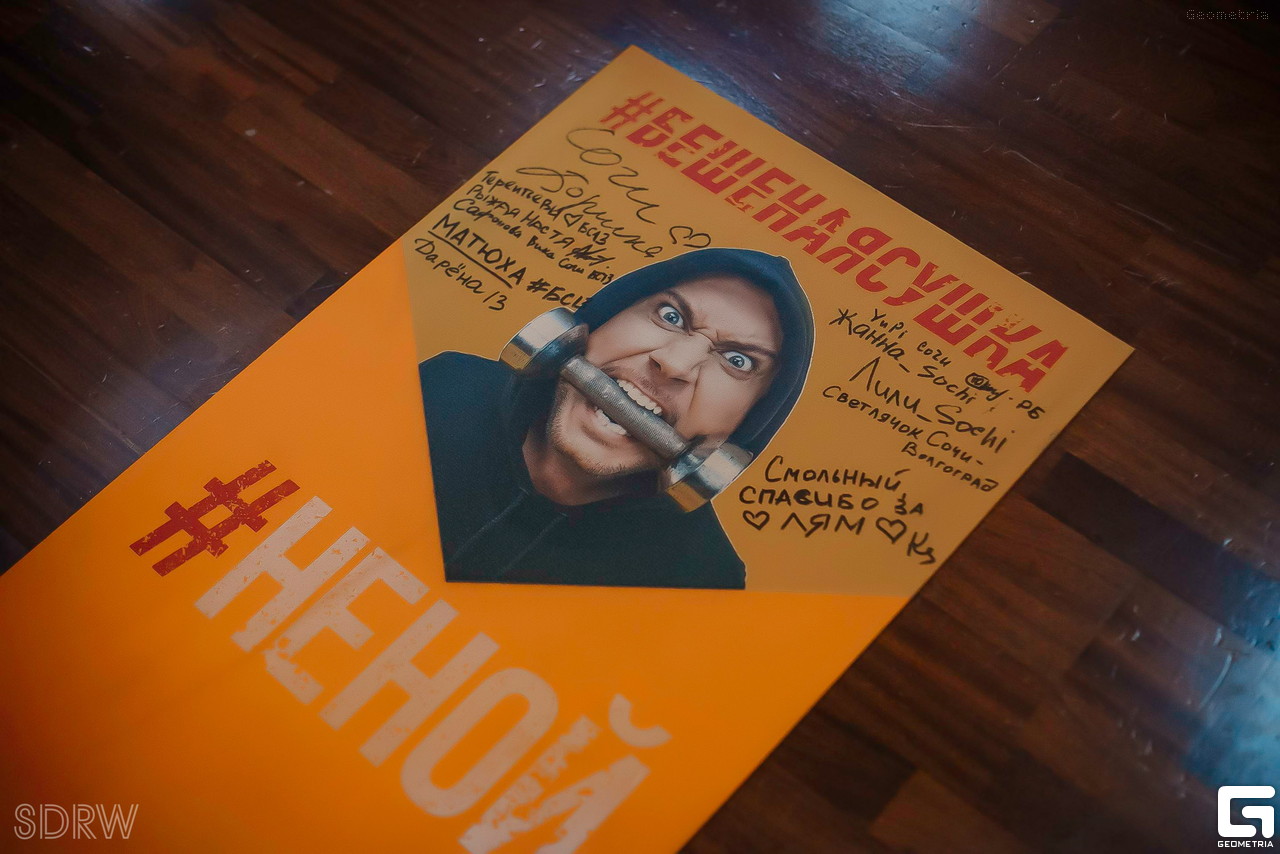 Geometria
#БЕШЕНАЯСУШКА
Сочи
Рыжая Настя
Сафонова Вика Сочи
МАТЮХА #БСИЗ
Дарёна 13
YuPi Сочи
Жанна_Sochi
РБ
Лили_Sochi
Светлячок Сочи-
Волгоград
Смольный,
СПАСИБО ЗА
ЛЯМ
#НЕНОЙ
SDRW
GEOMETRIA